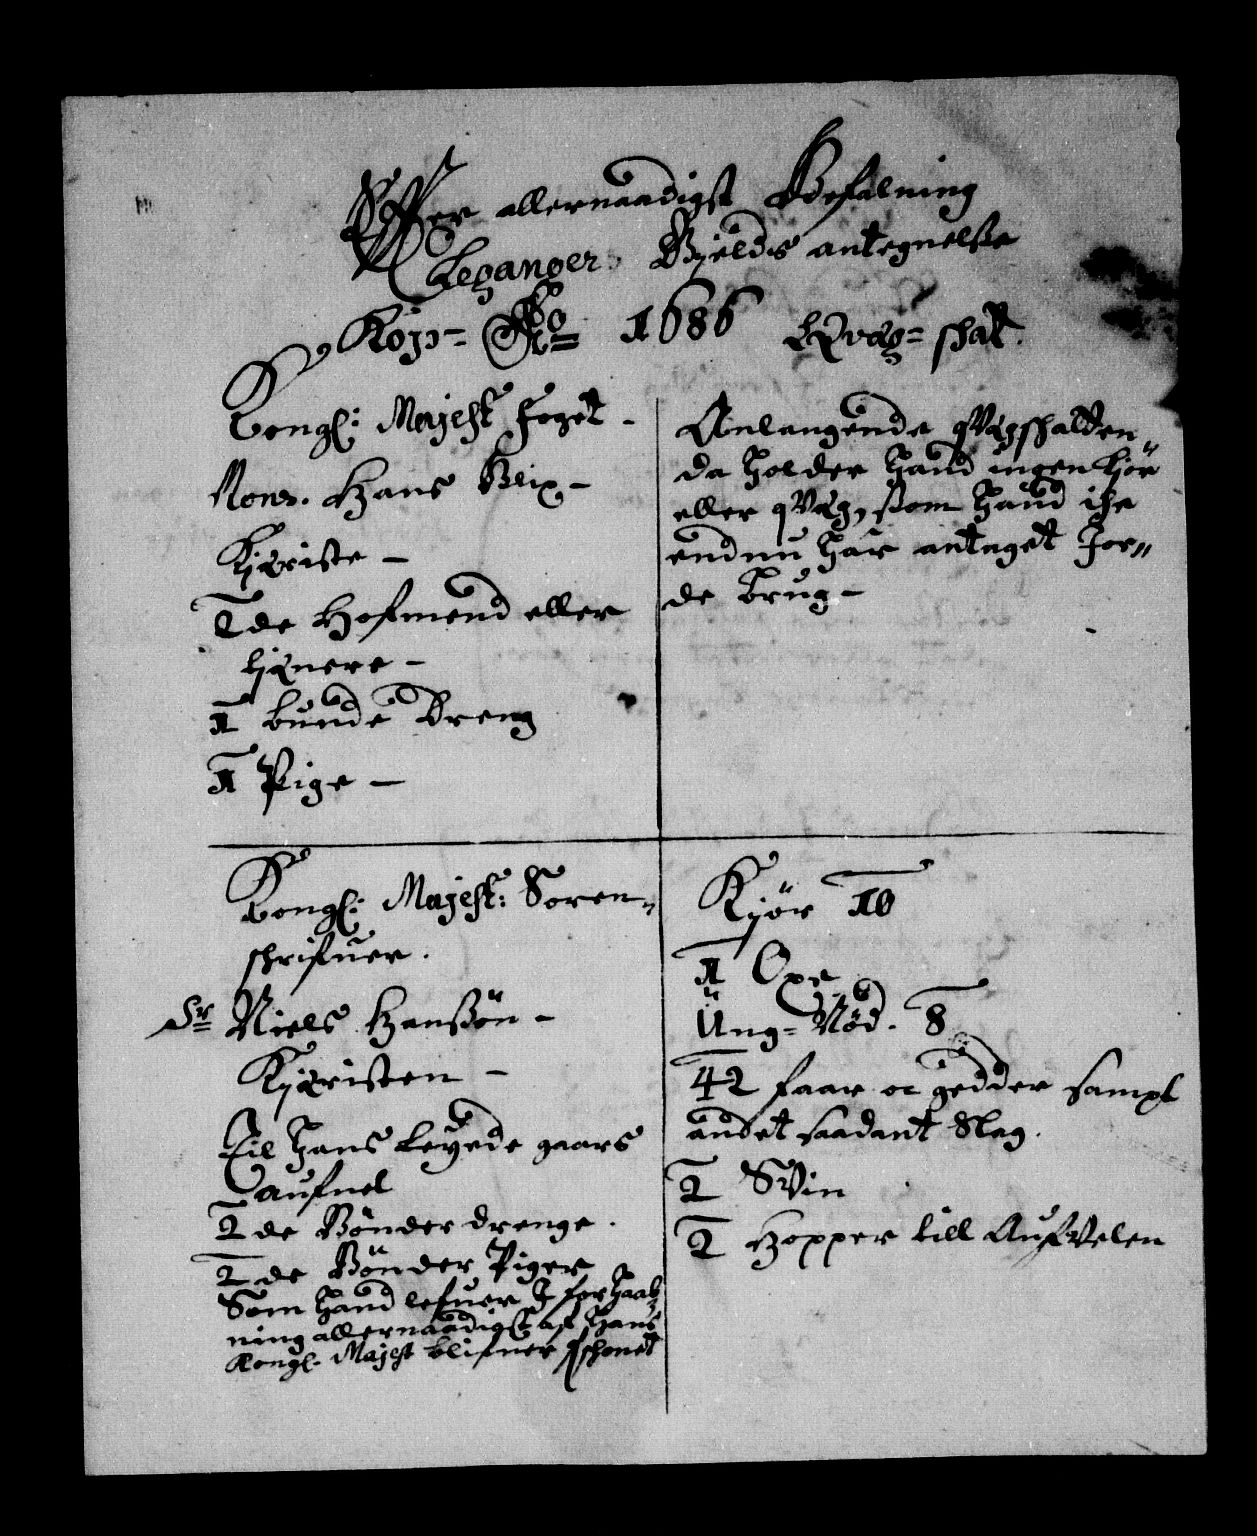 Efter allernaadigst Befalning
Leganger Gields antegnelße
Kop= Ao= 1686 Qvæg= skat.
Kongl: Majest Foget -
Mons. Hans Blix -
Kieriste -
2 de Hofmend eller
tienere -
1 bunde Dreng
1 Pige -
Anlangende qvægskatten
da holder hand ingen kiör
eller qvæg, ßom hand iche
endnu har antaget Jor"
de brug -
Kongl: Majest: Soren"
schrifuer.
Sr Niels Hanßön -
Kieristen -
Til hans leyede gaars
aufuel
2 de Bönder drenge.
2 de Bönder Piger
Som hand lefuer J forhaab
ning allernaadigst af hans
Kongl. Majest blifuer schonet
Kiör 10
1 Oxe
Ung= Nöd. 8
42 faar oc gedder sampt
andet saadant Slag.
2 Svin
2 Hopper till Aufvelen